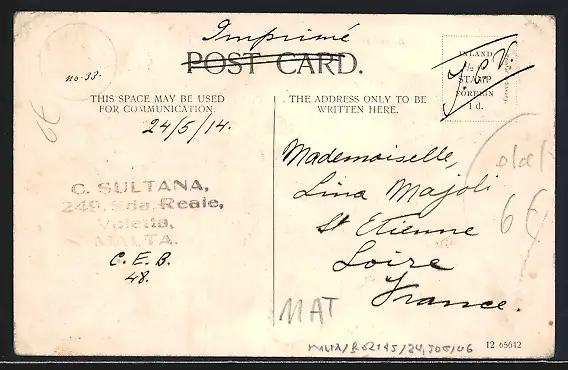 Imprimé
POST CARD.
no. 33.
INLAND
½ D.
STAMP
FOREIGN
1 d.
T.C.V.
THIS SPACE MAY BE USED
FOR COMMUNICATION.
THE ADDRESS ONLY TO BE
WRITTEN HERE.
24/5/14.
Mademoiselle,
Lina Majoli
St Etienne
Loire
France.
C. SULTANA,
249, Sda. Reale,
Valetta,
MALTA.
C.E.B.
48.
MAT
12 65642